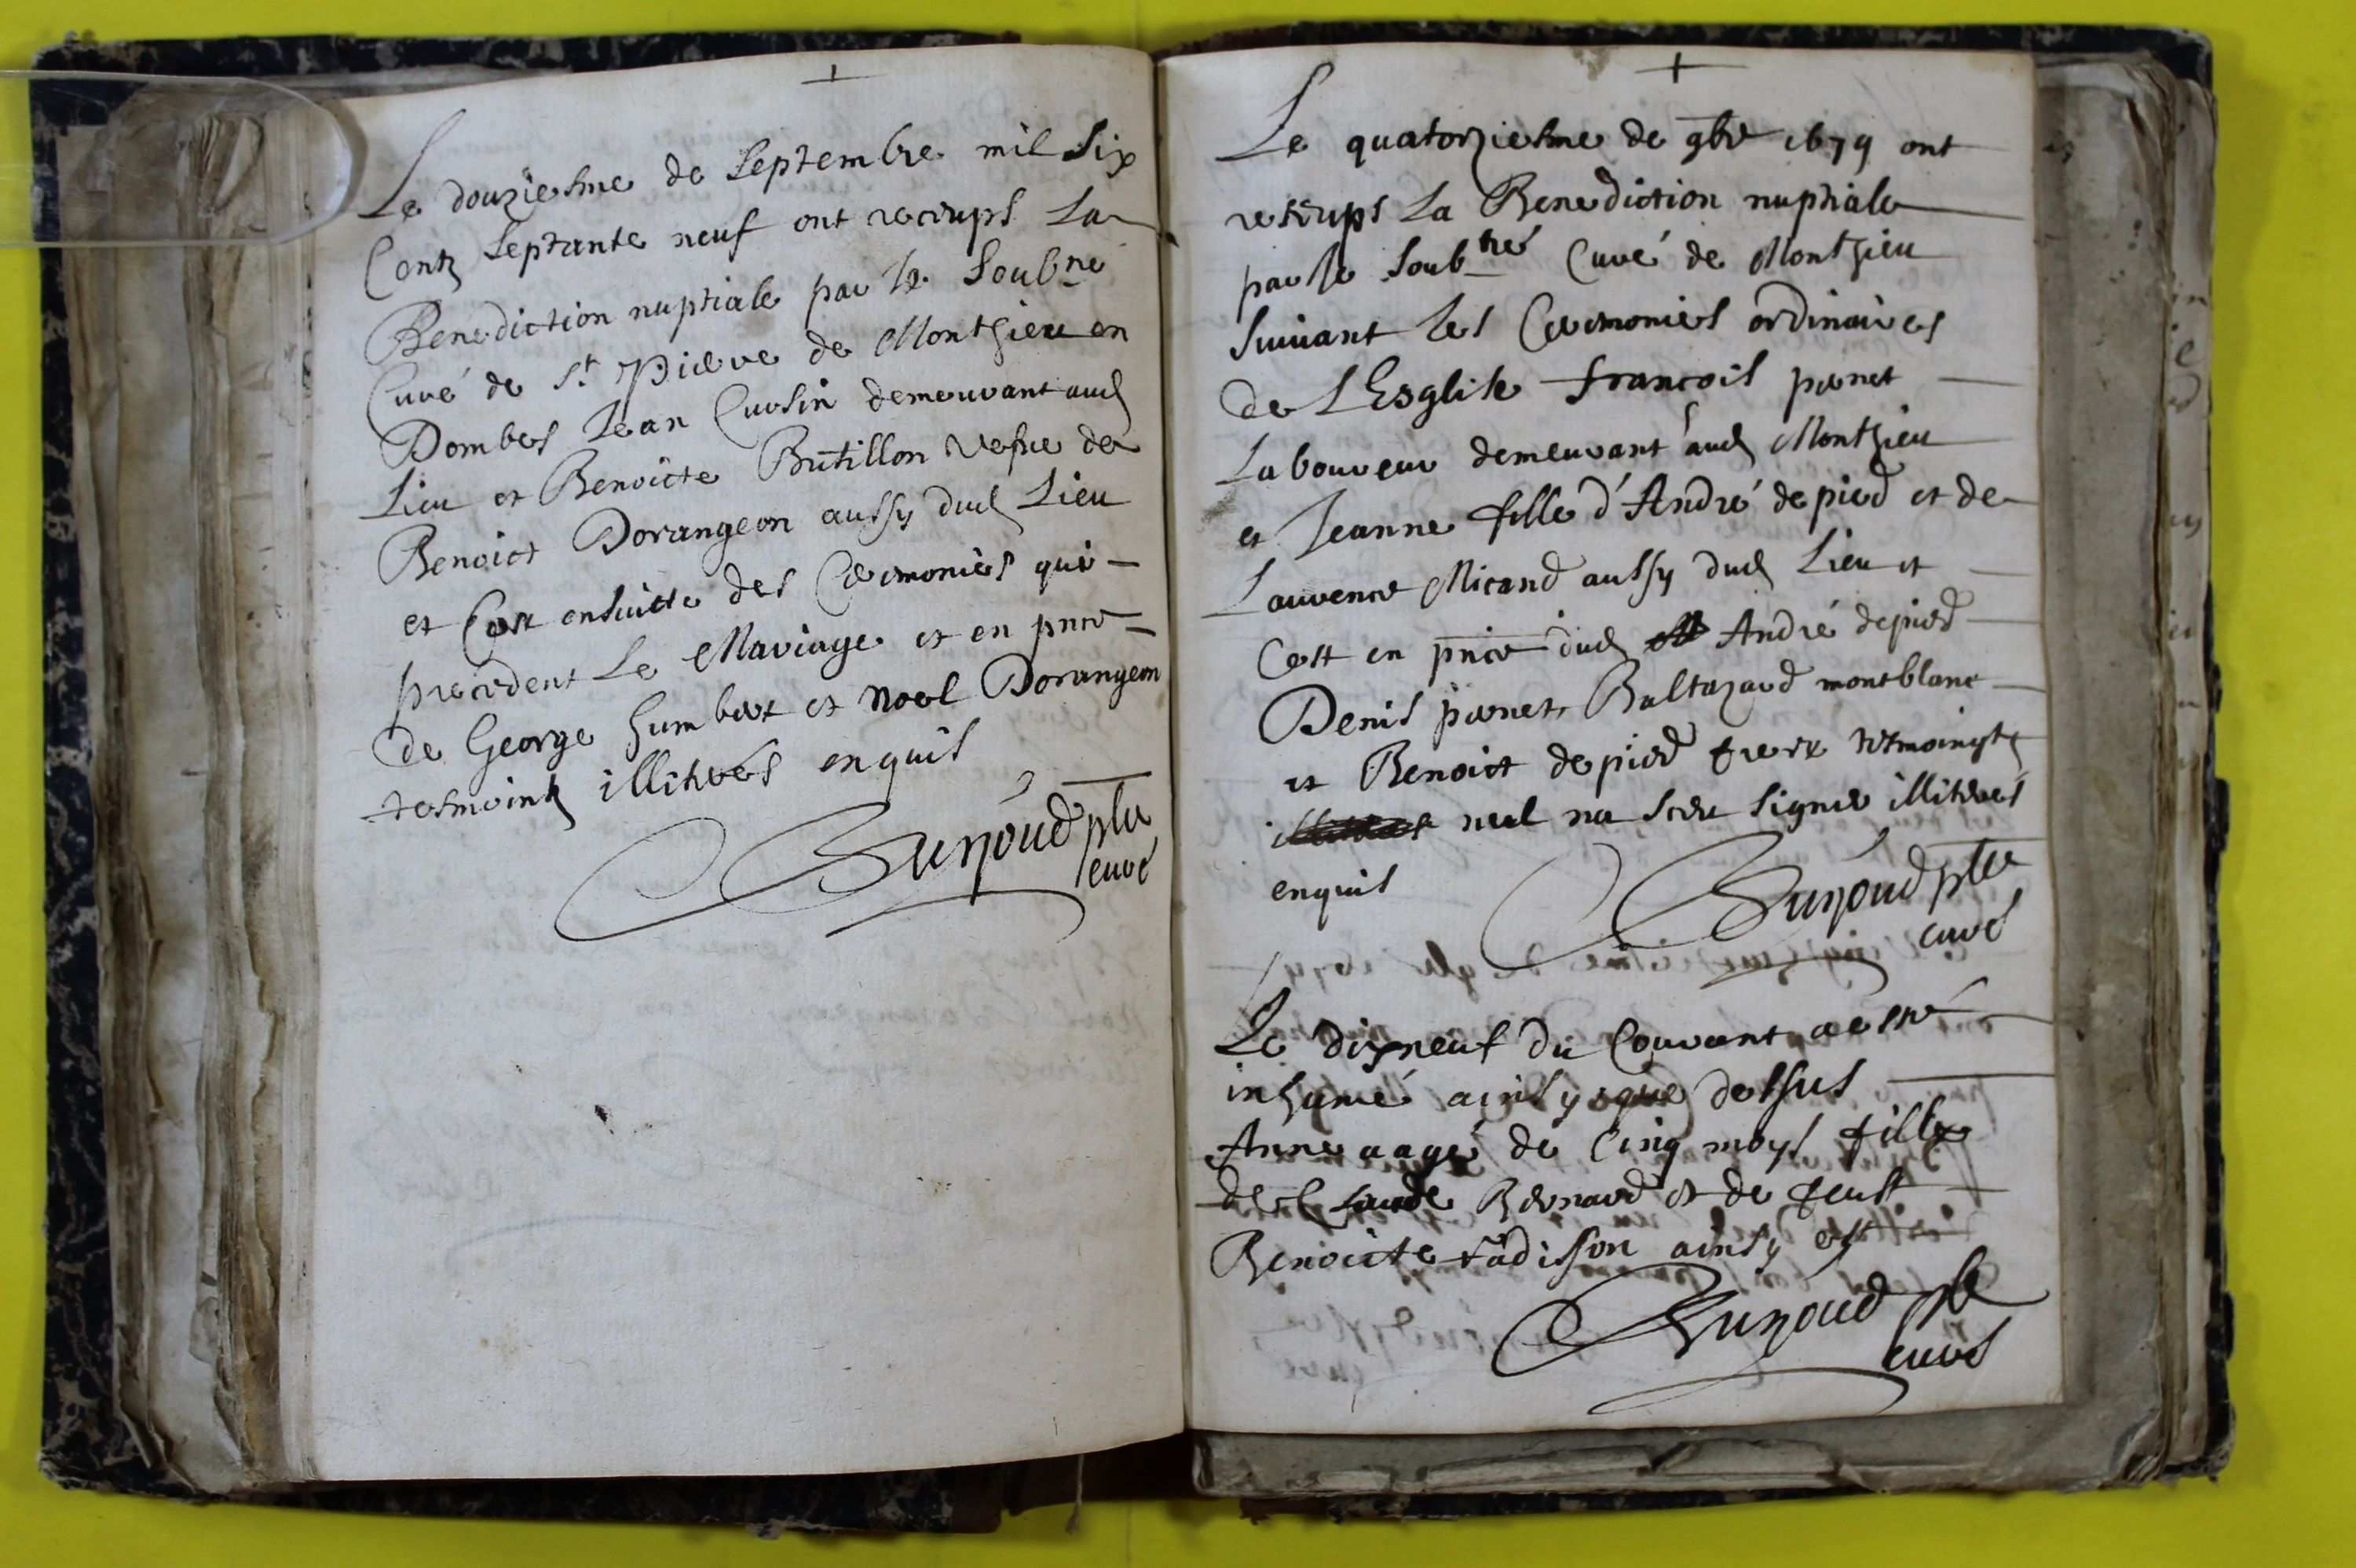 Le douziesme de Septembre mil Six
Centz Septante neuf ont receups La
Benediction nuptiale par le Soubné
Curé de St Pierre de Monthieu en
Dombes Jean Cursin demeurant aud
Lieu et Benoicte Butillon vefue de
Benoict Dorangeon aussy dud Lieu
et Cest ensuitte des Ceremonies qui
precedent Le Mariage et en pnce
de George humbert et Noel Dorangeon
tesmointz illiterés enquis
pbre
curé
Le quatorziesme de 9bre 1679 ont
receups La Benediction nuptiale
par le Soubné Curé de Monthieu
Suivant les Ceremonies ordinaires
de LEsglise francois pernet
Laboureur demeurant aud Monthieu
et Jeanne fille d'André depierd et de
Laurence Micand aussy dud Lieu et
Cest en pnce dud André depierd
Denis pernet, Baltazard montblanc
et Benoict depierd frere
nul na sceu signer illiterés
enquis
pbre
curé
Le dixneuf du Courant a esté
inhumé ainsy que dessus
Anne aagé de Cinq moys fille
de Claude Bernard et de feust
Benoicte Vadisson ainsy est
pbre
curé